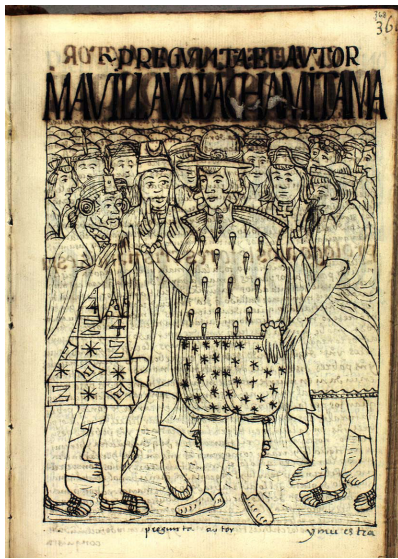 368
PREGVNTAELAVTOR
MAVILLAVAIACHAMITAMA
pregunta autor ymuestra